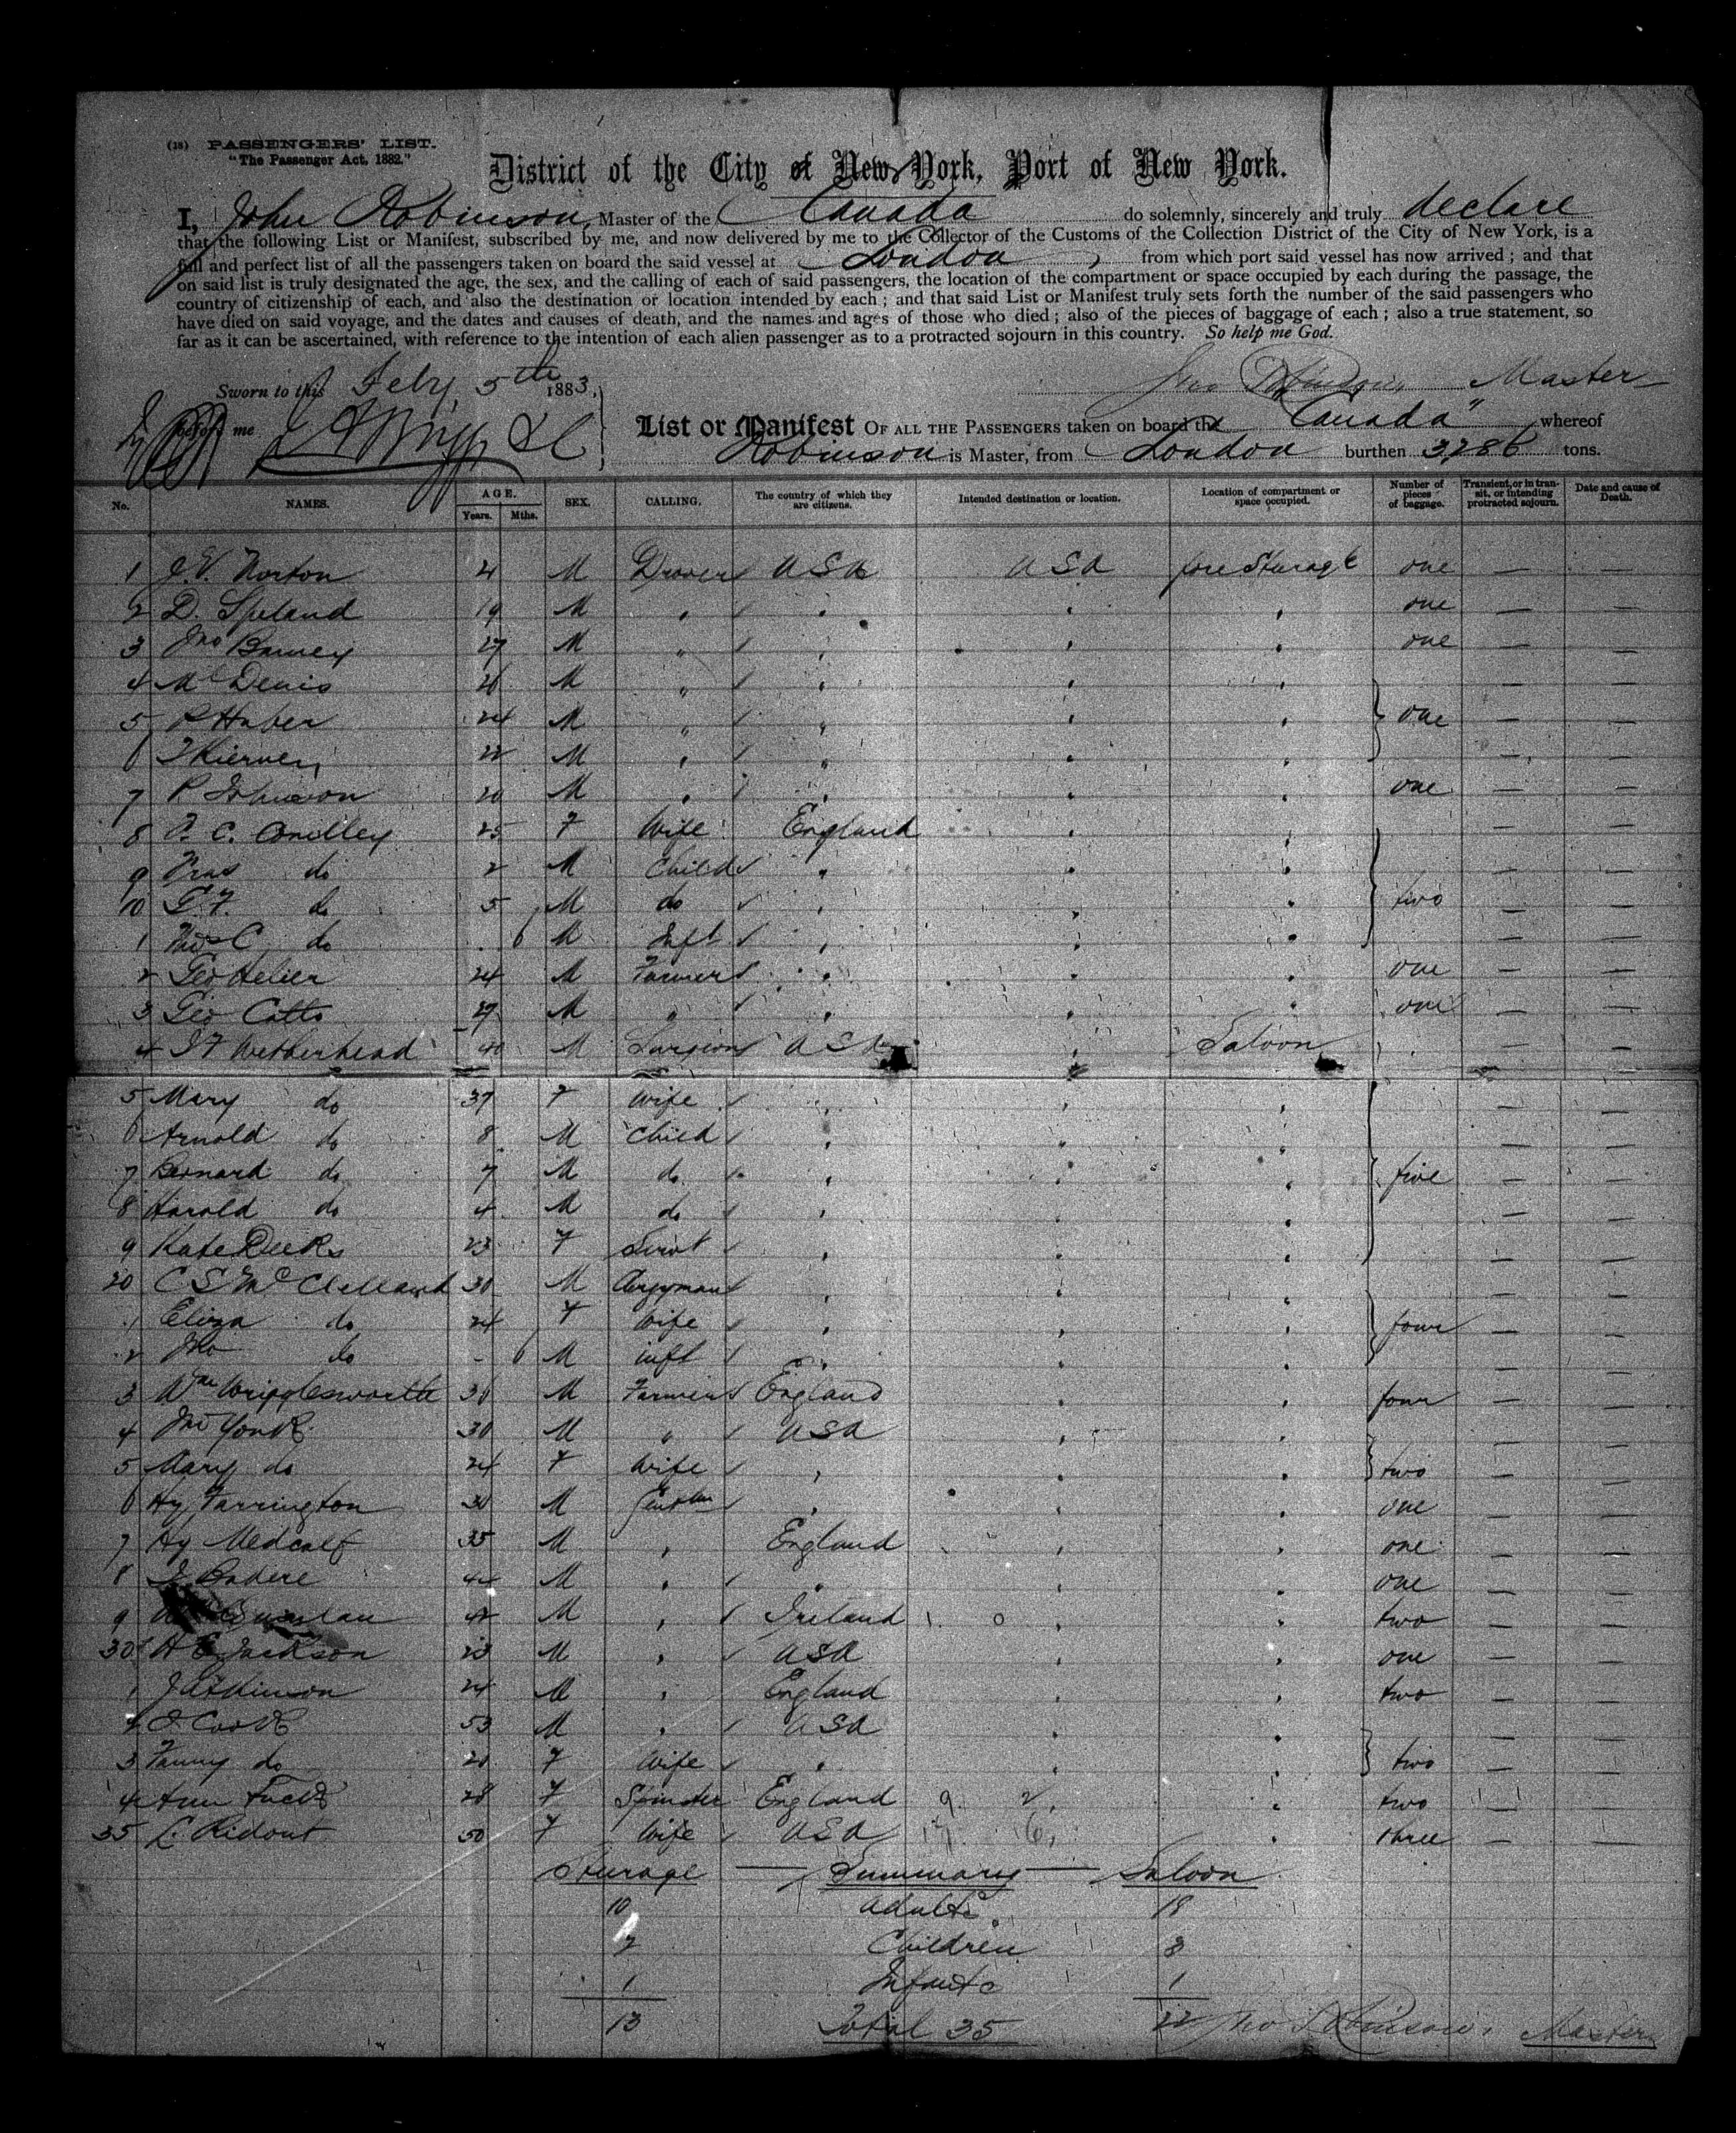 (18) PASSENGERS' LIST.
"The Passenger Act, 1882."
District of the City of New York, Port of New York.
I, John Robinson, Master of the Canada do solemnly, sincerely and truly declare
that the following List or Manifest, subscribed by me, and now delivered by me to the Collector of the Customs of the Collection District of the City of New York, is a
full and perfect list of all the passengers taken on board the said vessel at London, from which port said vessel has now arrived; and that
on said list is truly designated the age, the sex, and the calling of each of said passengers, the location of the compartment or space occupied by each during the passage, the
country of citizenship of each, and also the destination or location intended by each; and that said List or Manifest truly sets forth the number of the said passengers who
have died on said voyage, and the dates and causes of death, and the names and ages of those who died; also of the pieces of baggage of each; also a true statement, so
far as it can be ascertained, with reference to the intention of each alien passenger as to a protracted sojourn in this country. So help me God.
Sworn to this Feby 5th 1883, Jno Robinson, Master
before me
List or Manifest OF ALL THE PASSENGERS taken on board the "Canada" whereof
Robinson is Master, from London burthen 3286 tons.
No. NAMES. AGE. Years. Mths. SEX. CALLING. The country of which they are citizens. Intended destination or location. Location of compartment or space occupied. Number of pieces of baggage. Transient, or in transit, or intending protracted sojourn. Date and cause of Death.
1 J. V. Norton 21 M Drover USA USA fore Sturage one — —
2 D. Speland 19 M " " " " one — —
3 Jno Barney 27 M " " " " one — —
4 Mc Denis 26 M " " " " — —
5 P Huber 24 M " " " " one — —
6 T Kierven 22 M " " " " — —
7 P Johnson 20 M " " " " one — —
8 25 F Wife England " " — —
9 do 2 M Child " " " — —
10 G. F. do 5 M do " " " two — —
1 Thos C do 6 M Inft " " " — —
2 Geo Helier 24 M Farmer " " " one — —
3 Geo Catto 29 M " " " " one — —
4 J F Wetherhead 40 M Surgeon USA " Saloon — —
5 Mary do 37 F Wife " " " — —
6 Arnold do 8 M Child " " " — —
7 Bernard do 7 M do " " " five — —
8 Harold do 4 M do " " " — —
9 Kate Deeks 23 F Servt " " " — —
20 C S Mc Clelland 30 M Clergyman " " " — —
1 Eliza do 24 F Wife " " " four — —
2 Jno do - 6 M inft " " " — —
3 Wm Wrigglesworth 36 M Farmer England " " four — —
4 Jno York 30 M " USA " " — —
5 Mary do 24 F Wife " " " two — —
6 Hy Farrington 30 M Gentlm " " " one — —
7 Hy Medcalf 35 M " England " " one — —
8 M " " " " one — —
9 42 M " Ireland " " two — —
30 H E Jackson 23 M " USA " " one — —
1 J Atkinson 24 M " England " " two — —
2 J Cook 53 M " USA " " — —
3 Fanny do 20 F Wife " " " two — —
4 Ann Tuck 28 F Spinster England 9 2 " two — —
35 L. Ridout 50 F Wife USA 17 6 " three — —
Sturage — Summary — Saloon
10 Adults 18
2 Children 3
1 Infants 1
13 Total 35 22 Jno Robinson, Master